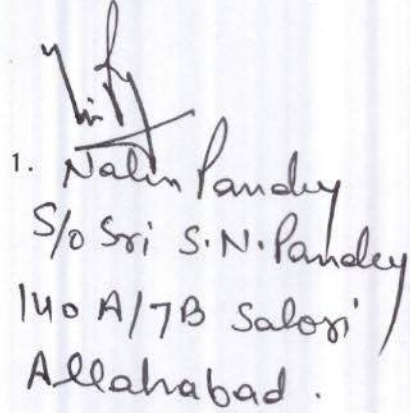 1. Nalin Pandey
S/o Sri S.N. Pandey
140 A/7B Salori
Allahabad.